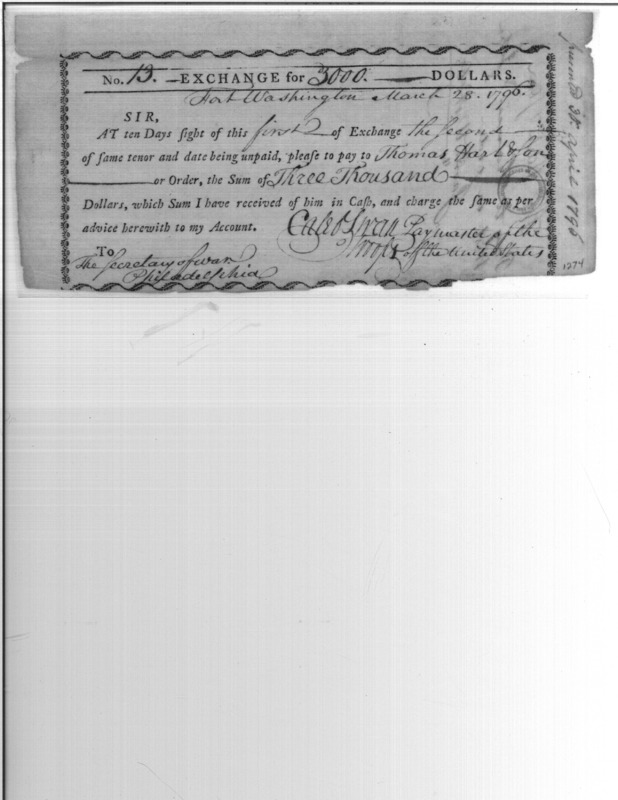 No. 13. EXCHANGE for 3000. DOLLARS.
Fort Washington March 28. 1796.
SIR,
AT ten Days ſight of this first of Exchange the second
of ſame tenor and date being unpaid, pleaſe to pay to Thomas Hart & Son
or Order, the Sum of Three Thousand
Dollars, which Sum I have received of him in Caſh, and charge the ſame as per
adviſe herewith to my Account. Caleb Swan Paymaster of the
Troops of the United States
To
The Secretary of war
Philadelphia
1274
30 April 1796